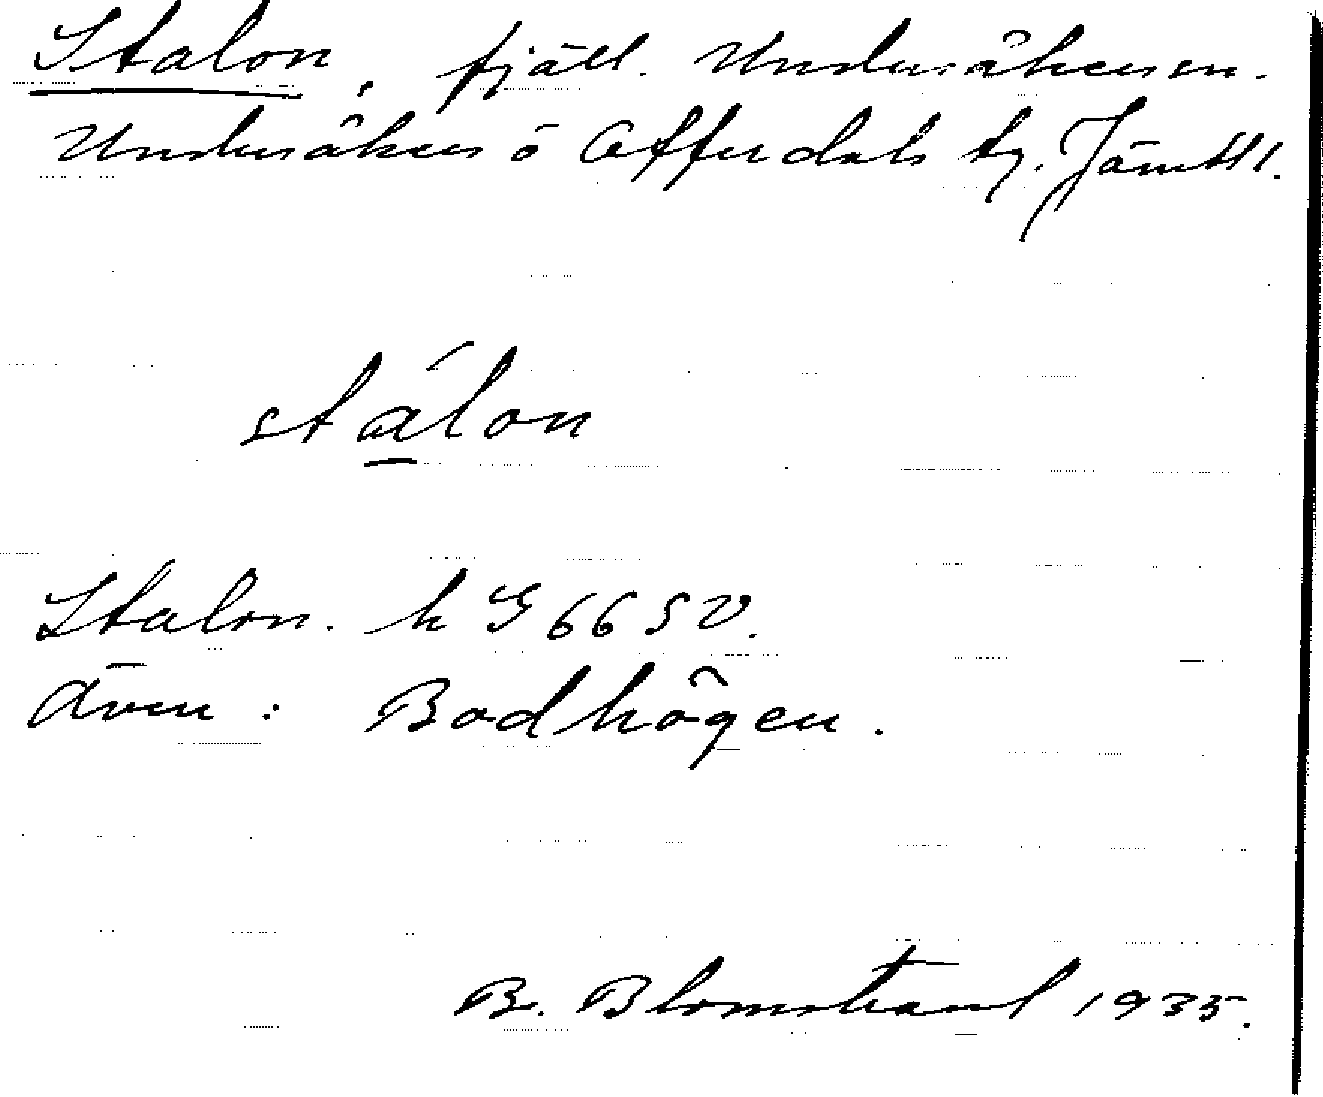 Stalon, fjäll. Undersåkers sn.
Undersåkers o Offerdals tg. Jämtl.
stálon
Stalon. k G 66 SV.
Även: Bodhögen.
B. Blomstrand 1935.